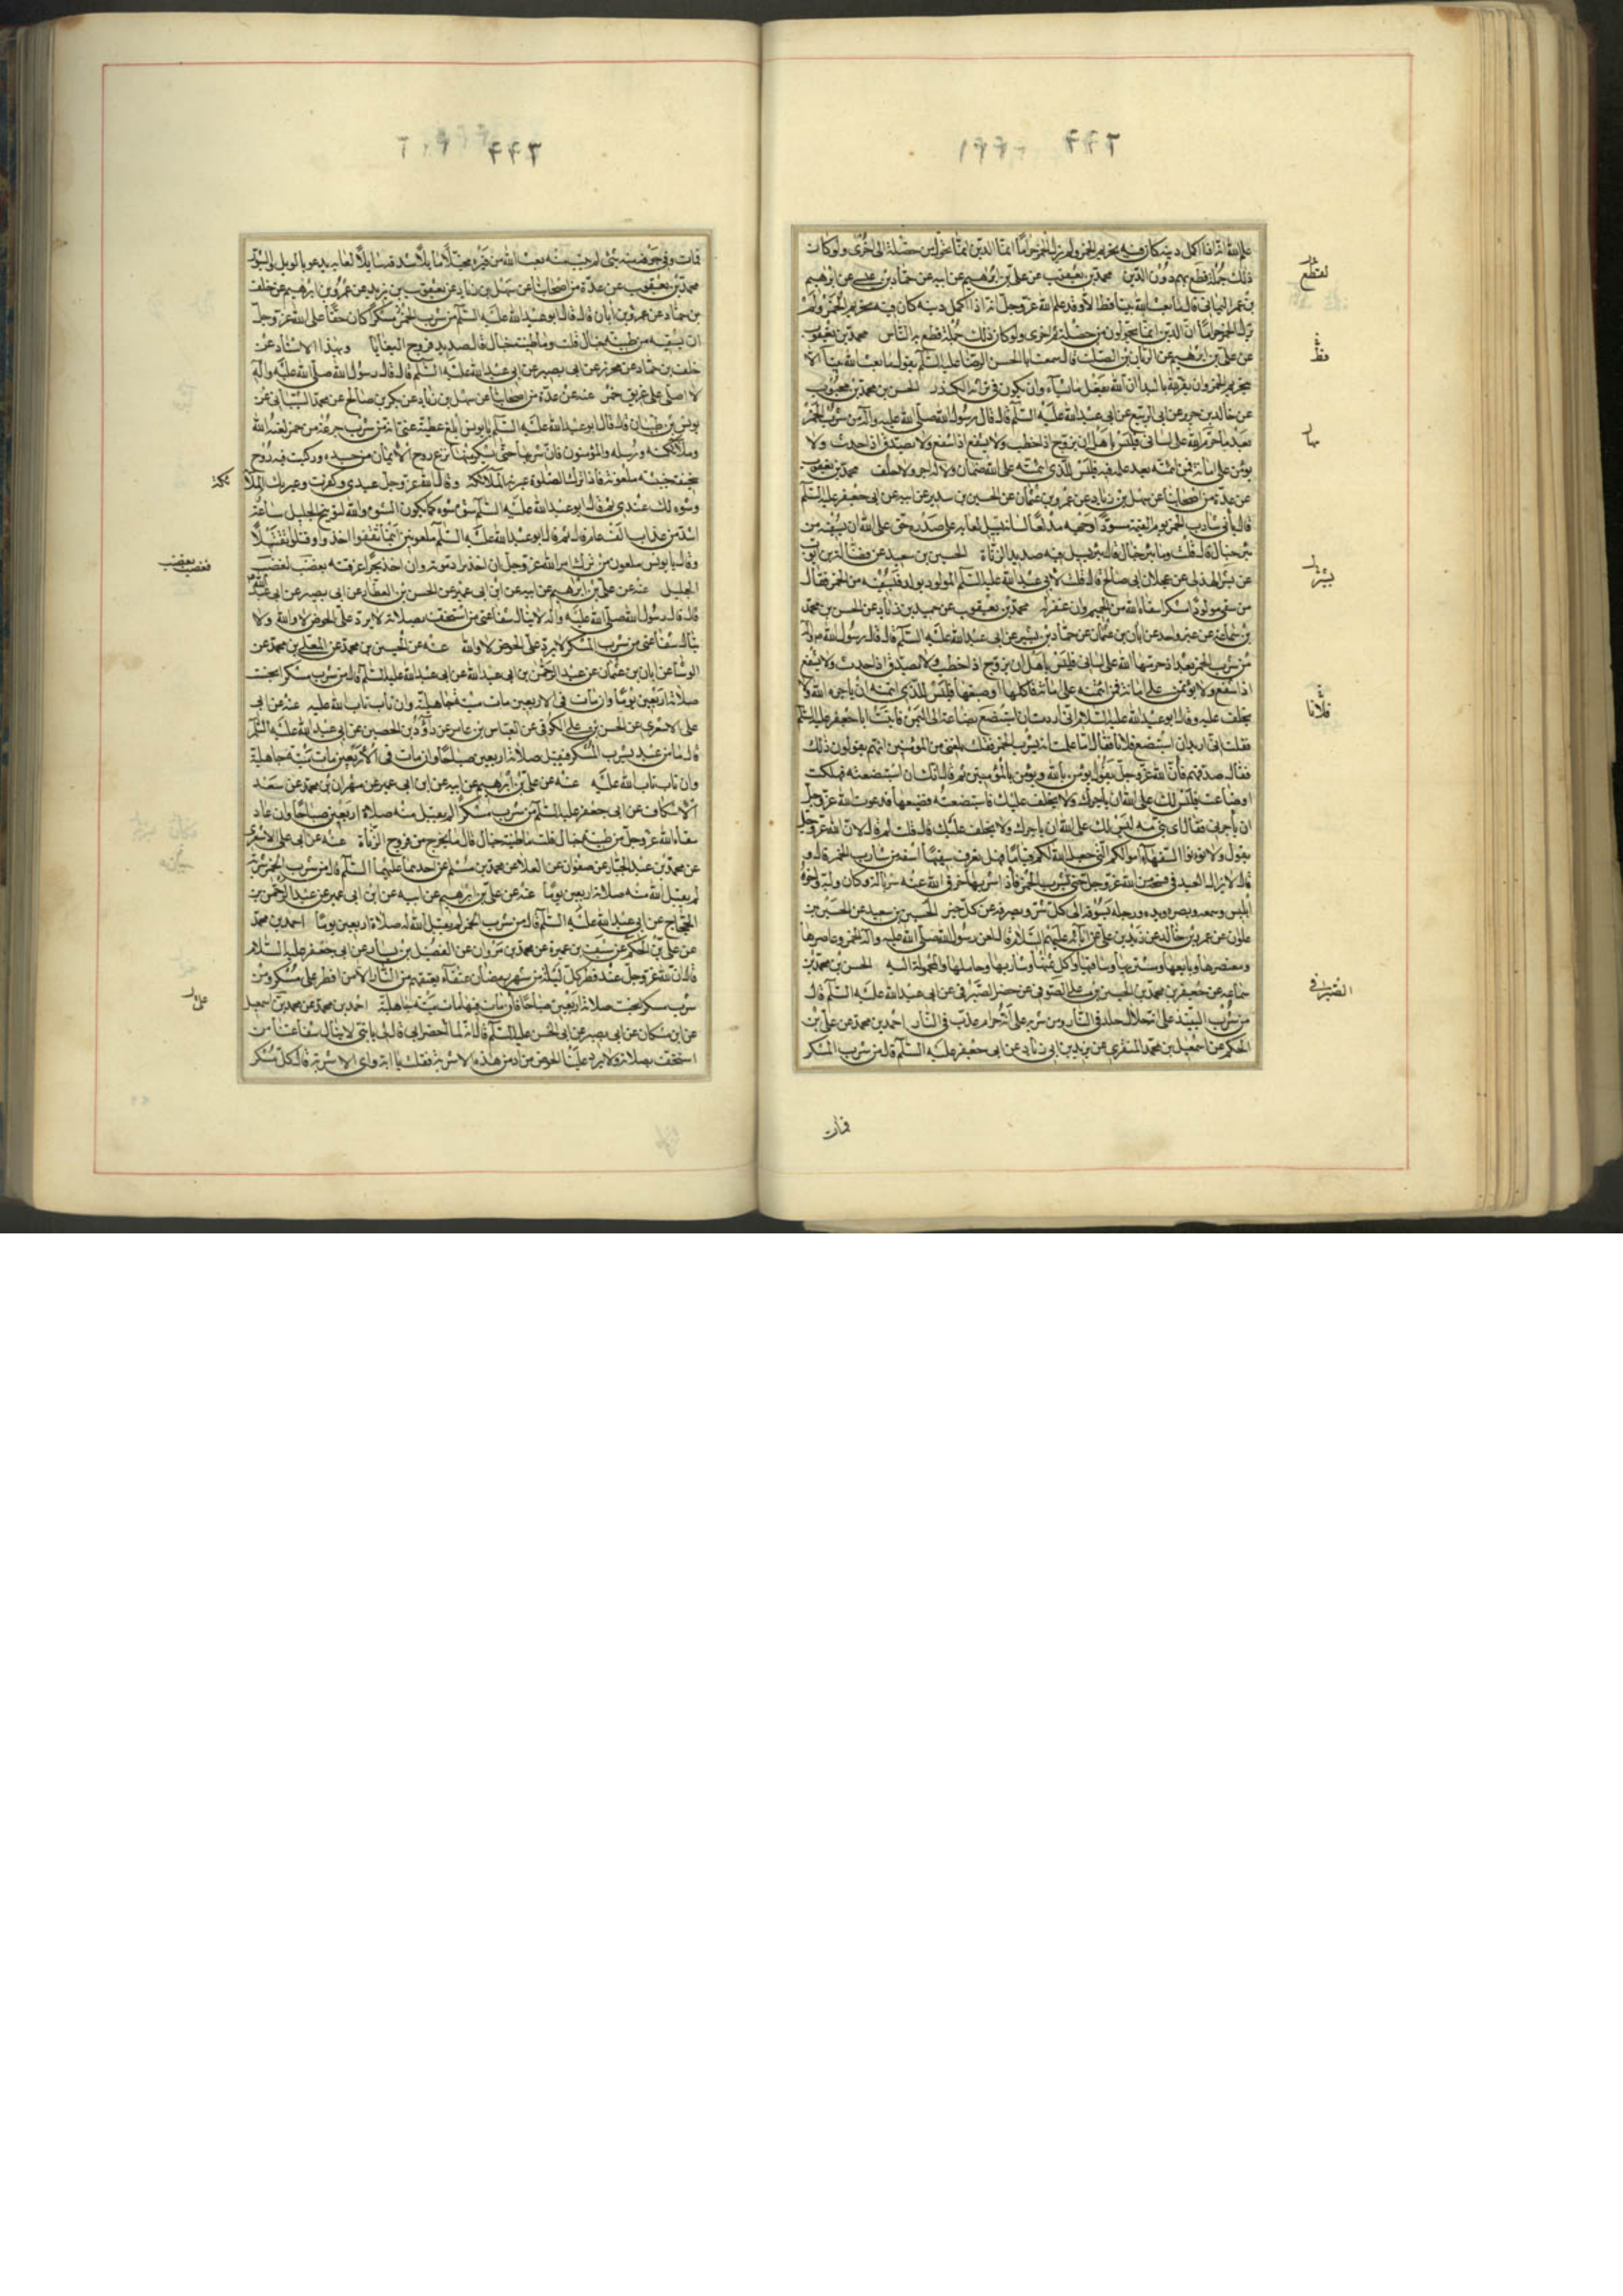 علم الله انه اذا اكمل دينه كان فيه تحريم الخمر ولم يزل الخمر حراما انما الدين انما يحول من خصلة الى اخرى ولو كان
ذلك جملة قطع بهم دون الدين محمد بن يعقوب عن علي بن ابرهيم عن ابيه عن حماد بن عيسى عن ابرهيم
بن عمر اليماني قال ما بعث الله نبيا قط الا وقد علم الله عز وجل انه اذا اكمل دينه كان فيه تحريم الخمر ولم
يزل الخمر حراما ان الدين انما يحولون من خصلة ثم اخرى ولو كان ذلك جملة قطع بالناس محمد بن يعقوب
عن علي بن ابرهيم عن الريان بن الصلت قال سمعت ابا الحسن الرضا عليه السلم يقول ما بعث الله نبيا الا
بتحريم الخمر وان يقر له بالبداء ان الله يفعل ما يشاء وان يكون في تراثه الكندر الحسن بن محمد بن محبوب
عن خالد بن جرير عن ابي الربيع عن ابي عبد الله عليه السلم قال قال رسول الله صلى الله عليه واله من شرب الخمر
بعد ما حرم الله على لساني فليس باهل ان يزوج اذا خطب ولا يشفع اذا شفع ولا يصدق اذا حدث ولا
يؤتمن على امانة فمن ائتمنه بعد علمه فيه فليس للذي ائتمنه على الله ضمان ولا له اجر ولا خلف محمد بن يعقوب
عن عدة من اصحابنا عن سهل بن زياد عن عمرو بن عثمان عن الحسين بن سدير عن ابيه عن ابي جعفر عليه السلم
قال يأتي شارب الخمر يوم القيمة مسودا وجهه مدلعا لسانه يسيل لعابه على صدره وحق على الله ان يسقيه من
بئر خبال قال قلت وما بئر خبال قال بئر يسيل فيه صديد الزناة الحسين بن سعيد عن فضالة بن ايوب
عن بشر الهذلي عن عجلان ابي صالح قال قلت لابي عبد الله عليه السلم المولود يولد فنسقيه من الخمر فقال
من سقى مولودا مسكرا سقاه الله من الحميم وان غفر له محمد بن يعقوب عن حميد بن زياد عن الحسن بن محمد
بن سماعة عن غير واحد عن ابان بن عثمان عن حماد بن بشير عن ابي عبد الله عليه السلم قال قال رسول الله ص واله
من شرب الخمر بعد اذ حرمها الله على لساني فليس باهل ان يزوج اذا خطب ولا يصدق اذا حدث ولا يشفع
اذا شفع ولا يؤتمن على امانة فمن ائتمنه على امانة فاكلها او ضيعها فليس للذي ائتمنه ان يأجره الله ولا
يخلف عليه وقال ابو عبد الله عليه السلام اني اردت ان استبضع بضاعة الى اليمن فاتيت ابا جعفر عليه السلم
فقلت اني اريد ان استبضع فلانا فقال اما علمت انه يشرب الخمر فقلت بلغني من المؤمنين انهم يقولون ذلك
فقال صدقهم فان الله عز وجل يقول يؤمن بالله ويؤمن للمؤمنين ثم قال انك ان استبضعته فهلكت
او ضاعت فليس لك على الله ان يأجرك ولا يخلف عليك فاستبضعته فضيعها فدعوت الله عز وجل
ان يأجرني فقال اي بني مه ليس لك على الله ان يأجرك ولا يخلف عليك قال قلت لم قال لان الله عز وجل
يقول ولا تؤتوا السفهاء اموالكم التي جعل الله لكم قياما فهل تعرف سفيها اسفه من شارب الخمر قال و
قال لا يزال العبد في فسحة من الله عز وجل حتى يشرب الخمر فاذا شربها خرق الله عنه سرباله وكان وليه واخوه
ابليس وسمعه وبصره ويده ورجله يسوقه الى كل شر ويصرفه عن كل خير الحسين بن سعيد عن الحسين بن
علوان عن عمرو بن خالد عن زيد بن علي عن ابائه عليهم السلام قال لعن رسول الله صلى الله عليه واله الخمر وعاصرها
ومعتصرها وبايعها ومشتريها وساقيها واكل ثمنها وشاربها وحاملها والمحمولة اليه الحسن بن محمد بن
سماعة عن جعفر بن محمد بن الحسين بن علي الصوفي عن خضر الصيرفي عن ابي عبد الله عليه السلم قال
من شرب النبيذ على انه حلال خلد في النار ومن شربه على انه حرام عذب في النار احمد بن محمد عن علي بن
الحكم عن اسمعيل بن محمد المنقري عن يزيد بن ابي زياد عن ابي جعفر عليه السلم قال من شرب المسكر
لقطع
فقد
بئر
فلانا
الصيرفي
فمات
فمات وفي جوفه منه شيء لم يتب منه بعث الله من قبره مخبلا مائلا شدقه سايلا لعابه يدعو بالويل والثبور
محمد بن يعقوب عن عدة من اصحابنا عن سهل بن زياد عن يعقوب بن يزيد عن عمرو بن ابرهيم عن خلف
بن حماد عن عمرو بن ابان قال قال ابو عبد الله عليه السلم من شرب الخمر مسكرا كان حقا على الله عز وجل
ان يسقيه من طينة خبال قلت وما طينة خبال قال صديد فروج البغايا وبهذا الاسناد عن
خلف بن حماد عن محرز عن ابي بصير عن ابي عبد الله عليه السلم قال قال رسول الله صلى الله عليه واله
لا اصلي على غريق خمر عنه عن عدة من اصحابنا عن سهل بن زياد عن بكر بن صالح عن محمد الشيباني عن
يونس بن ظبيان قال قال ابو عبد الله عليه السلم يا يونس ابلغ عطية عني انه من شرب جرعة من خمر لعنه الله
وملائكته ورسله والمؤمنون فان شربها حتى يسكر منها نزع روح الايمان من جسده وركبت فيه روح
سخيفة خبيثة ملعونة فاذا ترك الصلوة عيرته الملائكة وقال الله عز وجل عبدي كفرت وعيرتك الملا
وسوءه لك عبدي ثم قال ابو عبد الله عليه السلم سوءه سوءه كما يكون السوء والله لتوبيخ الجليل ساعة
اشد من عذاب الف عام قال ثم قال ابو عبد الله عليه السلم ملعونين اينما ثقفوا اخذوا وقتلوا تقتيلا
وقال يا يونس ملعون من ترك امر الله عز وجل ان اخذ برا دمرته وان اخذ بحرا غرقته يغضب لغضب
الجليل عنه عن علي بن ابرهيم عن ابيه عن ابن ابي عمير عن الحسن بن العطار عن ابي بصير عن ابي عبد الله
قال قال رسول الله صلى الله عليه واله لا ينال شفاعتي من استخف بصلاته لا يرد على الحوض لا والله ولا
ينال شفاعتي من شرب المسكر لا يرد على الحوض لا والله عنه عن الحسين بن محمد عن المعلى بن محمد عن
الوشا عن ابان بن عثمان عن عبد الرحمن بن ابي عبد الله عن ابي عبد الله عليه السلم قال من شرب مسكرا انحبست
صلاته اربعين يوما وان مات في الاربعين مات ميتة جاهلية وان تاب تاب الله عليه عنه عن ابي
علي الاشعري عن الحسن بن علي الكوفي عن العباس بن عامر عن داود بن الحصين عن ابي عبد الله عليه السلم
قال ما من عبد يشرب المسكر فيقبل صلاته اربعين صباحا وان مات في الاربعين مات ميتة جاهلية
وان تاب تاب الله عليه عنه عن علي بن ابرهيم عن ابيه عن ابن ابي عمير عن مهران بن محمد عن سعد
الاسكاف عن ابي جعفر عليه السلم من شرب مسكرا لم يقبل منه صلاة اربعين صباحا وان عاد
سقاه الله عز وجل من طينة خبال قلت ما طينة خبال قال ما يخرج من فروج الزناة عنه عن ابي علي الاشعري
عن محمد بن عبد الجبار عن صفوان عن العلا عن محمد بن مسلم عن احدهما عليهما السلم قال من شرب الخمر شربة
لم يقبل الله منه صلاة اربعين يوما عنه عن علي بن ابرهيم عن ابيه عن ابن ابي عمير عن عبد الرحمن بن
الحجاج عن ابي عبد الله عليه السلم قال من شرب الخمر لم يقبل الله له صلاة اربعين يوما احمد بن محمد
عن علي بن الحكم عن سيف بن عميرة عن محمد بن مروان عن الفضيل بن يسار عن ابي جعفر عليه السلام
قال ان لله عز وجل عند فطر كل ليلة من شهر رمضان عتقاء يعتقهم من النار الا من افطر على مسكر ومن
شرب مسكرا انحبست صلاته اربعين صباحا فان مات فيها مات ميتة جاهلية احمد بن محمد عن محمد بن اسمعيل
عن ابن مسكان عن ابي بصير عن ابي الحسن عليه السلم قال انه لما احتضر ابي قال لي يا بني لا ينال شفاعتنا من
استخف بصلاته ولا يرد علينا الحوض من ادمن هذه الاشربة فقلت يا ابه واي الاشربة قال كل مسكر
ئكة
فغضب بغضب